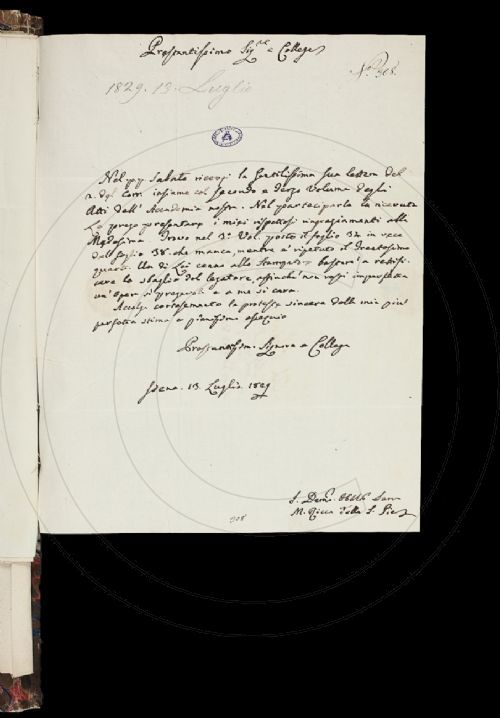 Prestantissimo Sig.re e Collega
No. 308.
1829. 13. Luglio
Nel pp Sabato ricevei la Gentilissima sua lettera del
2. del Corr. insieme col Secondo e Terzo Volume degli
Atti dell' Accademia nostra. Nel parteciparle la ricevuta
La prego presentare i miei rispettosi ringraziamenti alla
Medesima. Trovo nel 3.o Vol. posto il foglio 34 in vece
del foglio 38. che manca, mentre è ripetuto il trentesimo
quarto. Un di Lei cenno allo Stampatore basterà a rettifi
care lo sbaglio del legatore, affinchè non resti imperfetta
un' Opera sì pregevole e a me sì cara.
Accolga cortesemente la protesta sincera della mia più
perfetta stima e pienissimo ossequio
Prestantissim. Signore e Collega
Siena. 13. Luglio 1829
S. Dev.o Obbl.o Serv
M. Ricca delle S. Pie
308